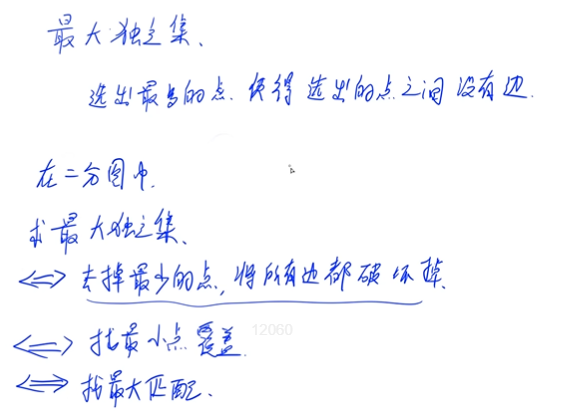 最大独立集、
选出最多的点.使得选出的点之间没有边.
在二分图中,
求最大独立集、
<=> 去掉最少的点,将所有边都破坏掉.
12060
<=> 找最小点覆盖.
<=> 找最大匹配.